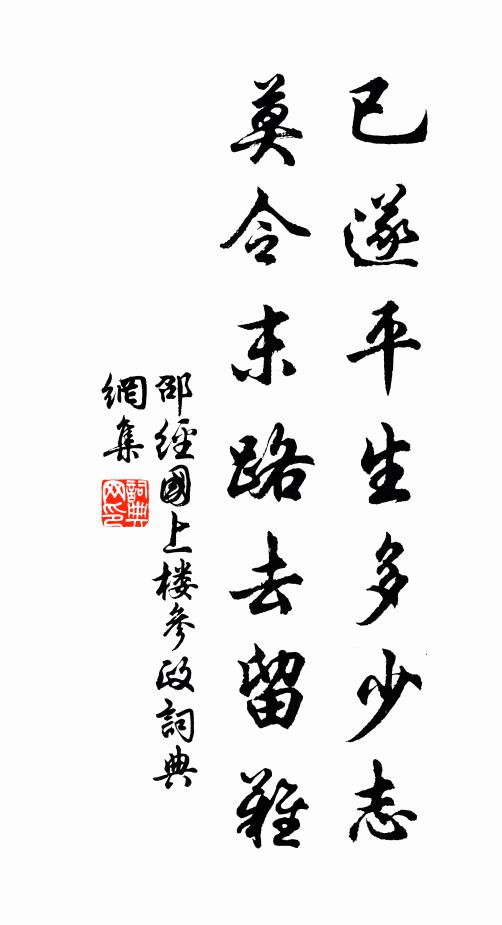 已遂平生多少志
莫令末路去留難
邵經國上楼參政詞典
網集
詞典
网印